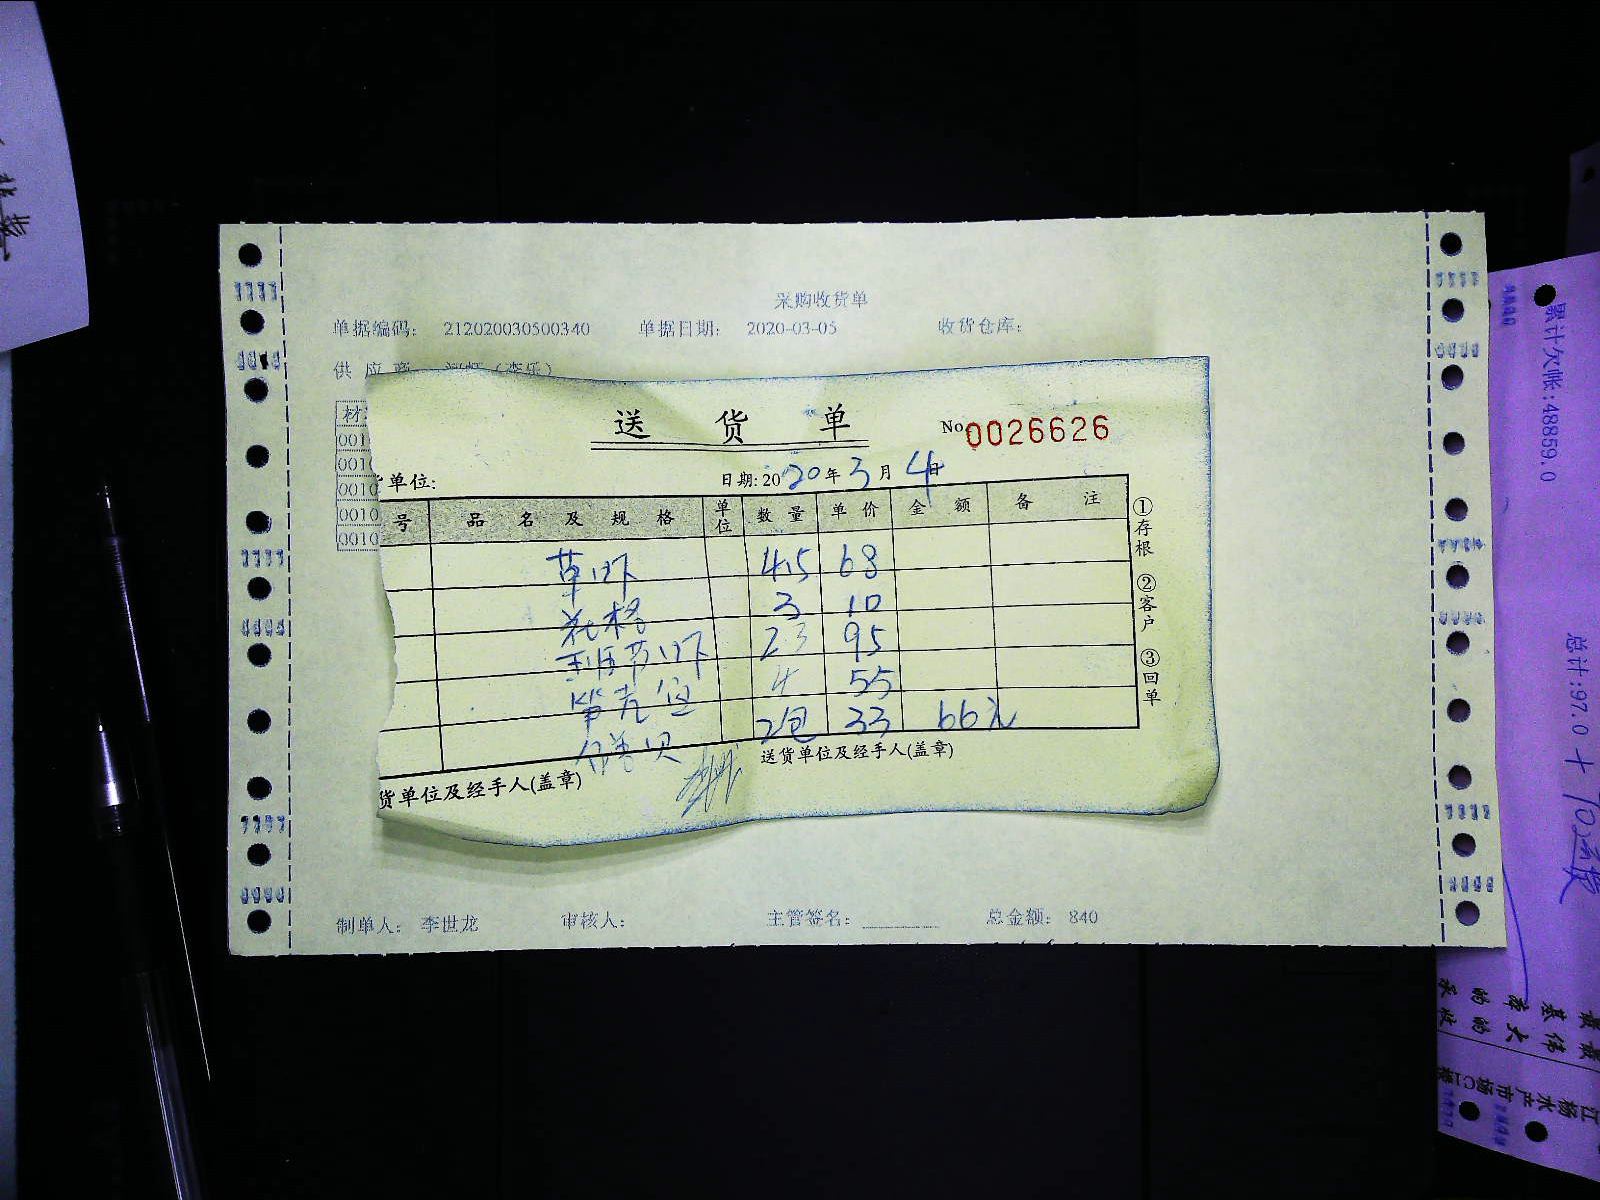 采购收货单
单据编码： 212020030500340 单据日期： 2020-03-05 收货仓库：
供 应 商
送 货 单 No 0026626
单位: 日期: 2020年3月4日
号 品 名 及 规 格 单位 数 量 单 价 金 额 备 注
草虾 4.5 68
花格 3 10
节虾 23 95
4 55
贝 2包 33 66元
货单位及经手人(盖章) 送货单位及经手人(盖章)
①存根 ②客户 ③回单
001
001
0010
0010
0010
制单人： 李世龙 审核人： 主管签名： 总金额： 840
累计欠帐:48859.0
总计:97.0 +
江杨水产市场C1